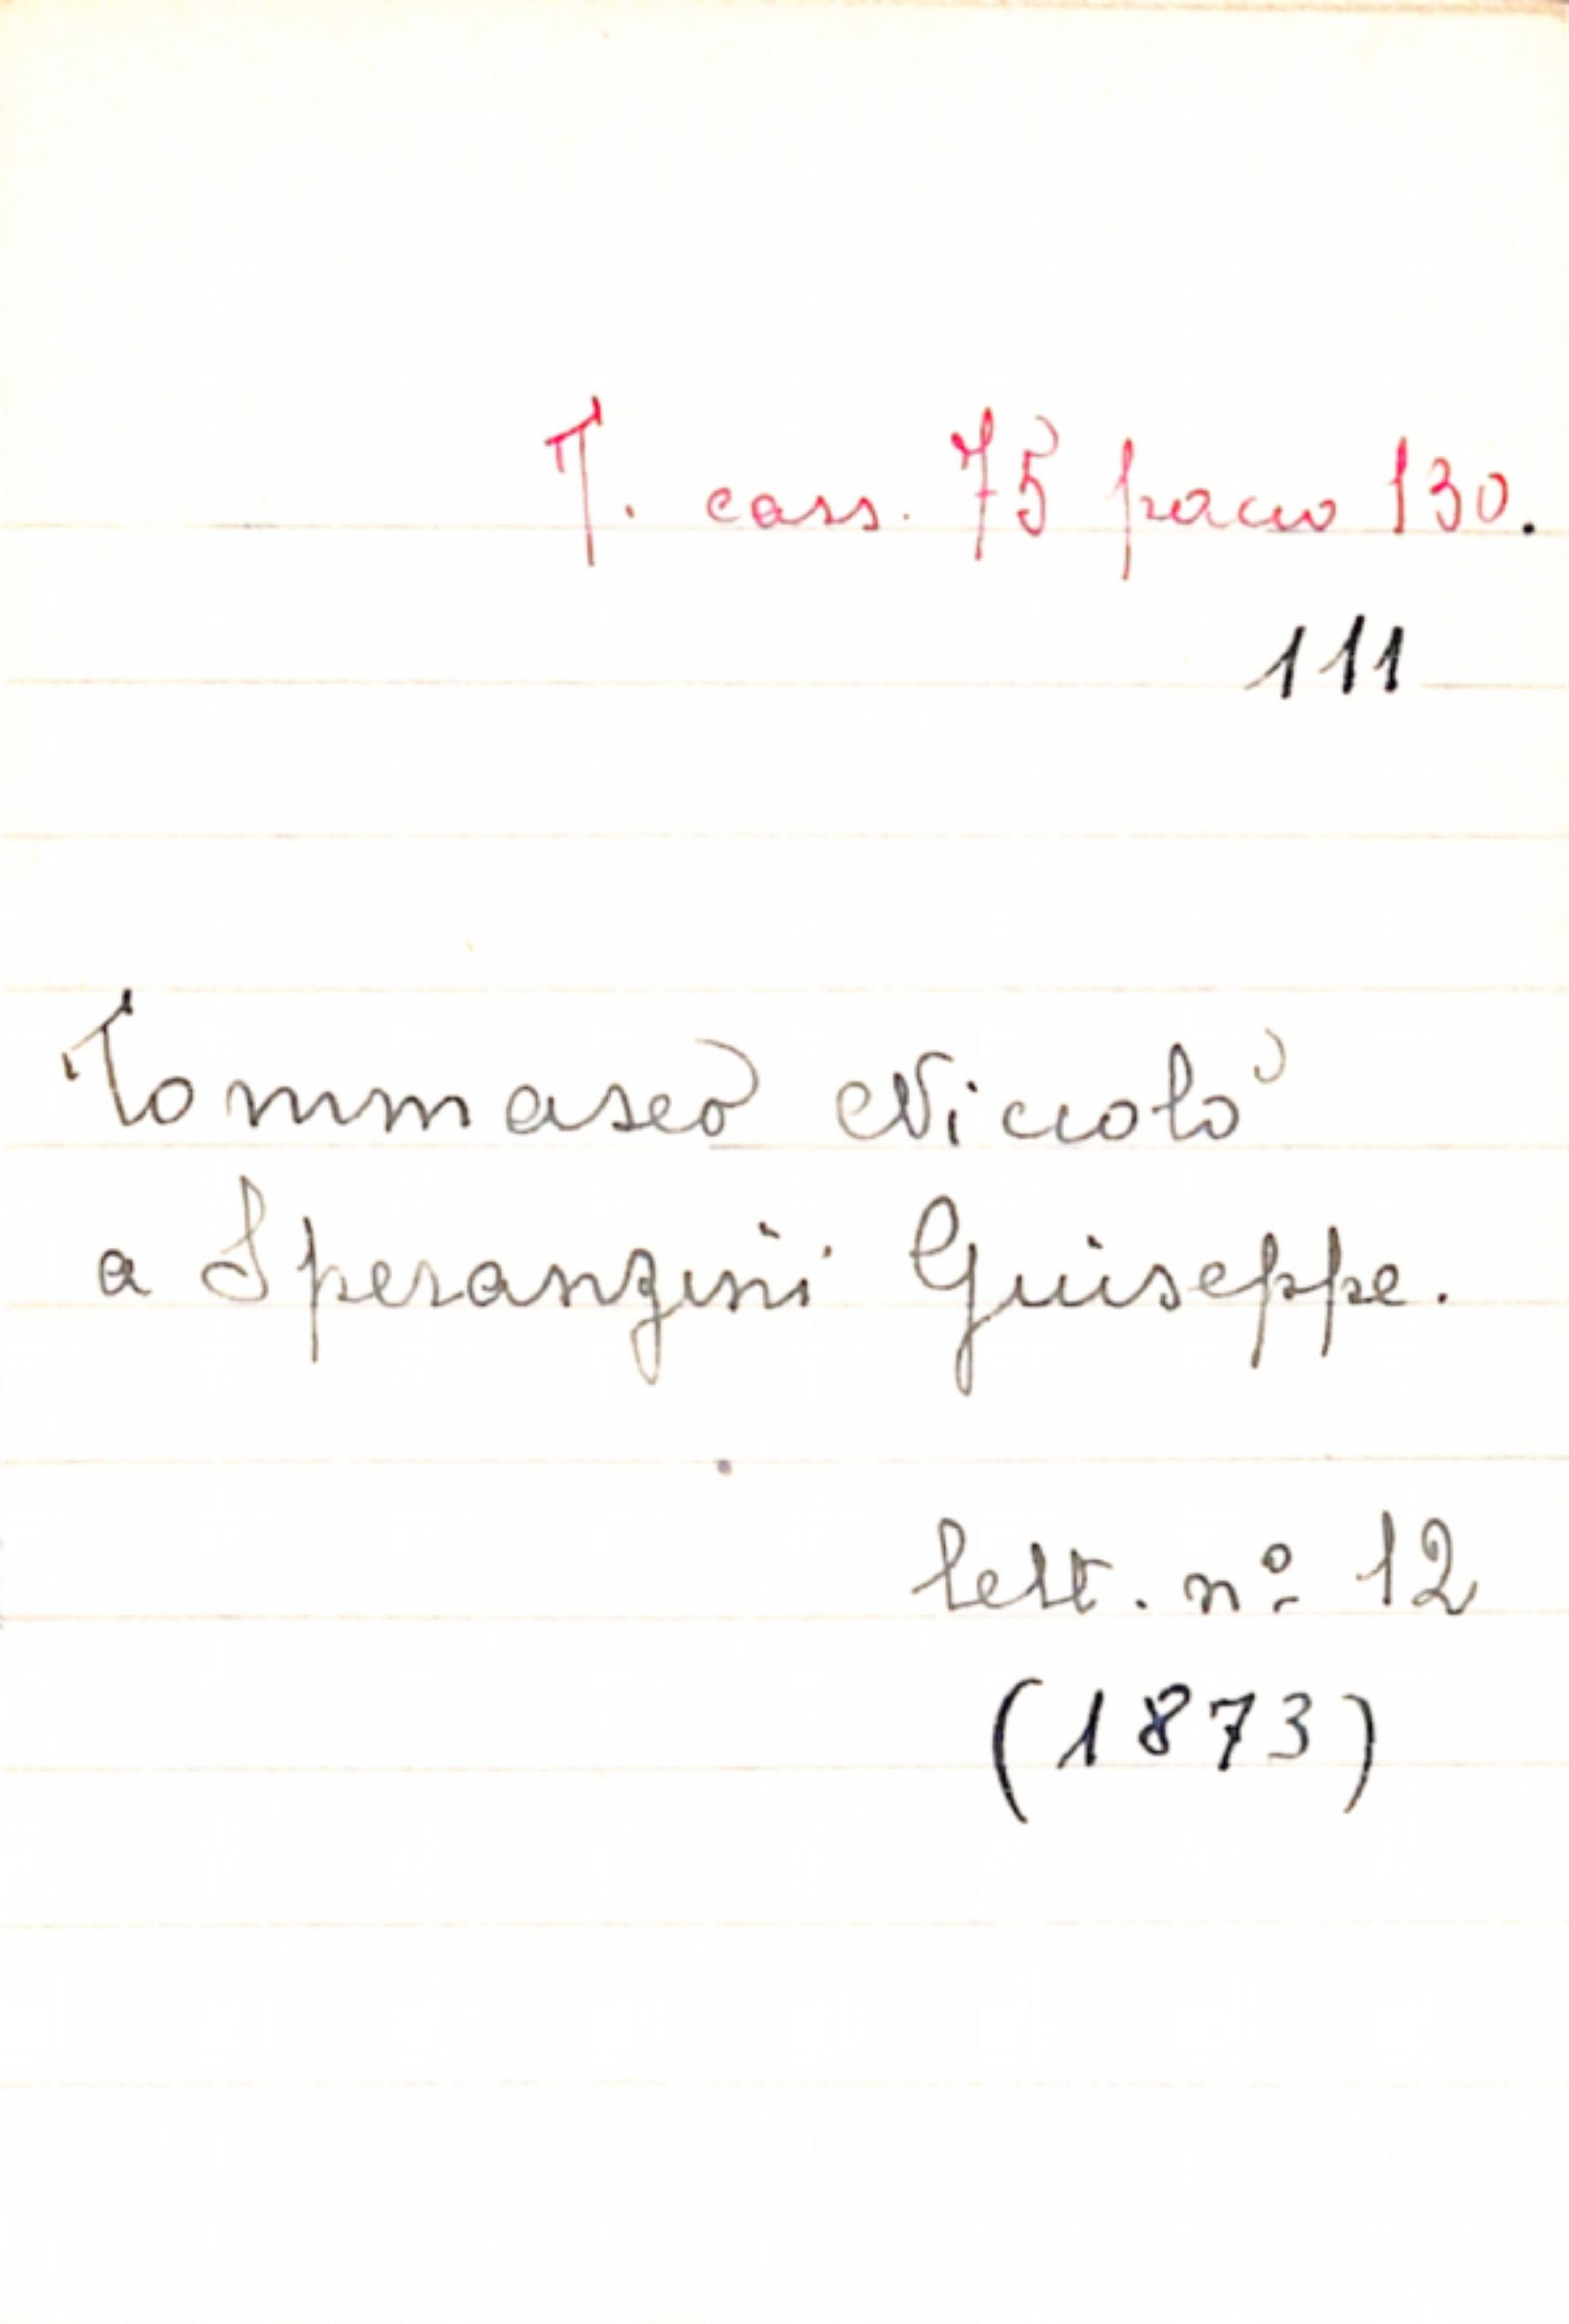 T. cass. 75 pacco 130.
111
Tommaseo Niccolò
a Speranzini Giuseppe.
lett. nº 12
(1873)